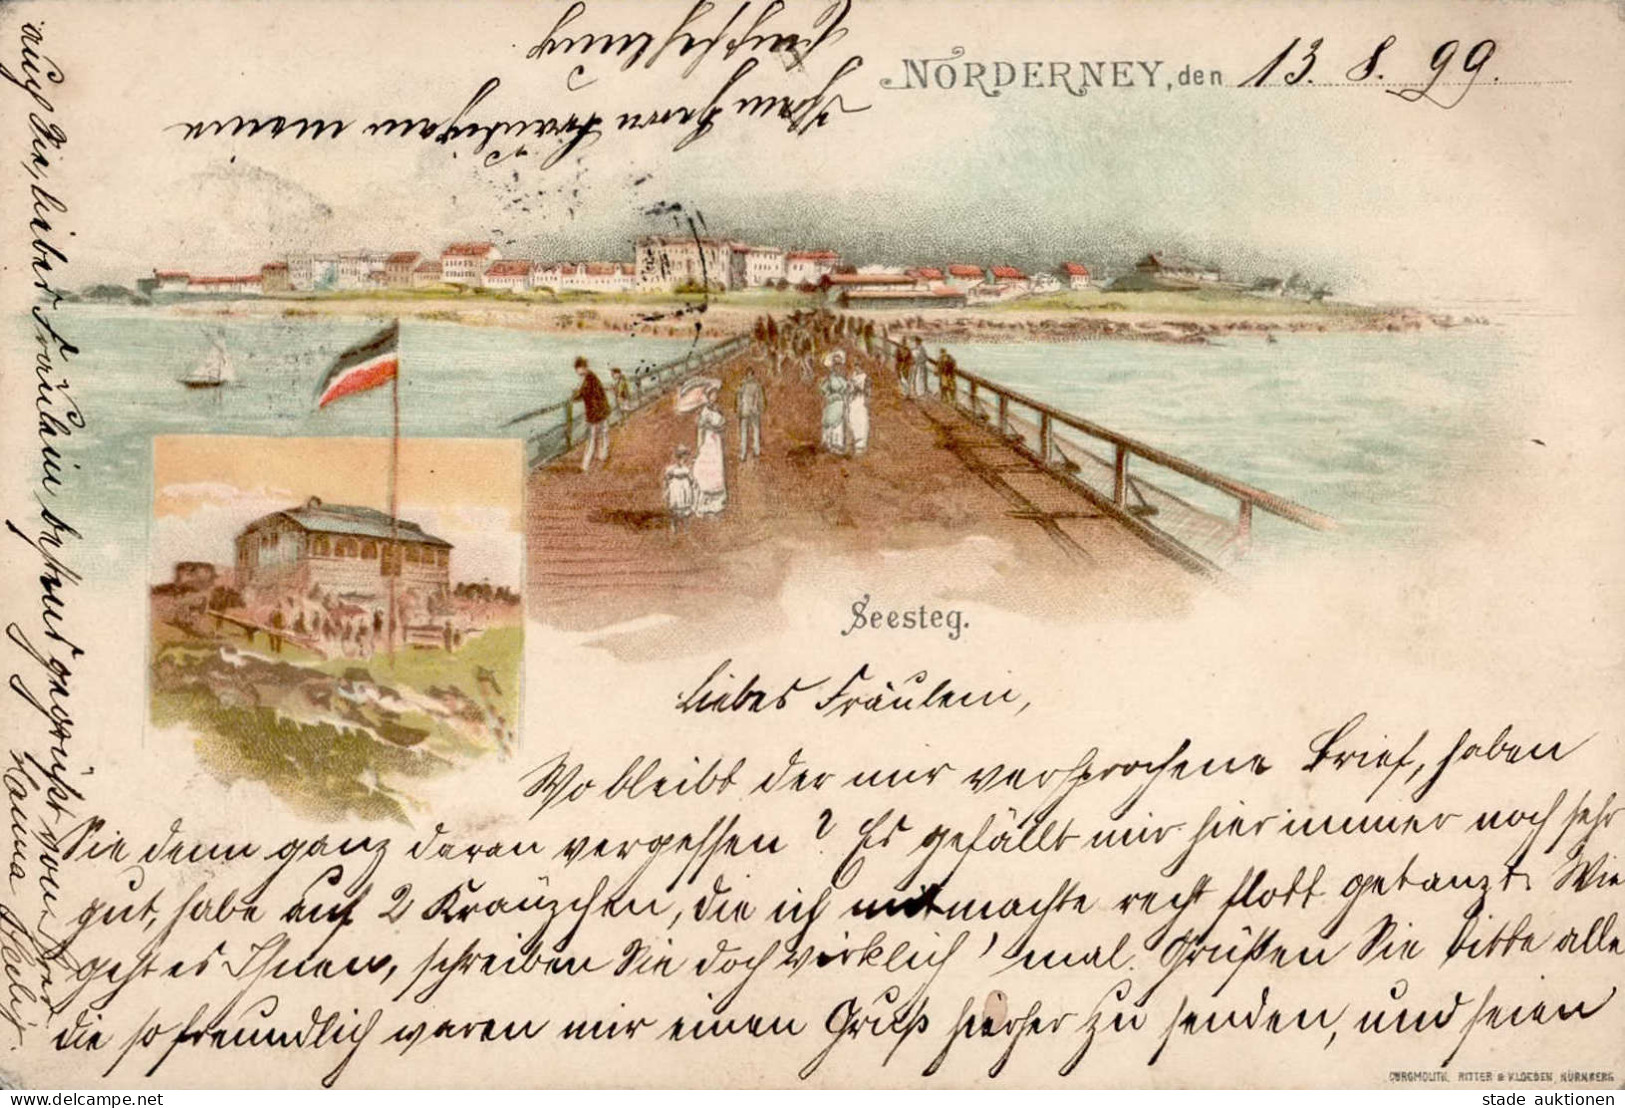 NORDERNEY, den 13. 8. 99.
Seesteg.
Liebes Fräulein,
Wo bleibt der mir versprochene Brief, haben
Sie denn ganz daran vergessen? Es gefällt mir hier immer noch sehr
gut, habe auf 2 Kränzchen, die ich mitmachte recht flott getanzt. Wie
geht es Ihnen, schreiben Sie doch wirklich 'mal. Grüßen Sie bitte alle
die so freundlich waren mir einen Gruß hierher zu senden, und seien
auch Sie, liebes Fräulein bestens gegrüßt von Ihrer
Hanna
Ihrem Herrn Bräutigam meine
Empfehlung
CHROMOLITH. RITTER & KLOEDEN, NÜRNBERG
stade auktionen
delcampe.net